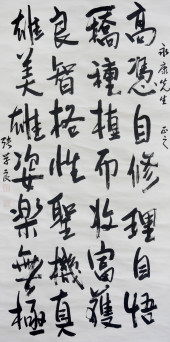 永康先生 正之
高憑自修理自悟
橋種植而收富獲
良智格性聖機真
雄美雄姿樂無極